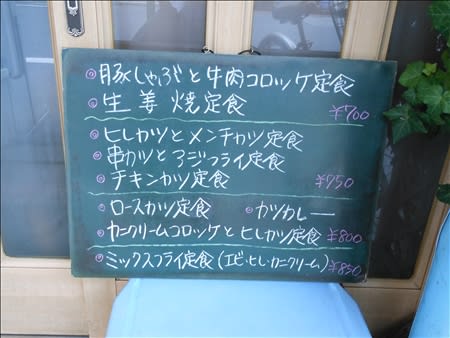 ◎豚しゃぶと牛肉コロッケ定食
◎生姜焼定食 ¥700
◎ヒレカツとメンチカツ定食
◎串カツとあじフライ定食
◎チキンカツ定食 ¥750
◎ロースカツ定食 ◎カツカレー
◎カニクリームコロッケとヒレカツ定食 ¥800
◎ミックスフライ定食(エビ・ヒレ・カニクリーム) ¥850